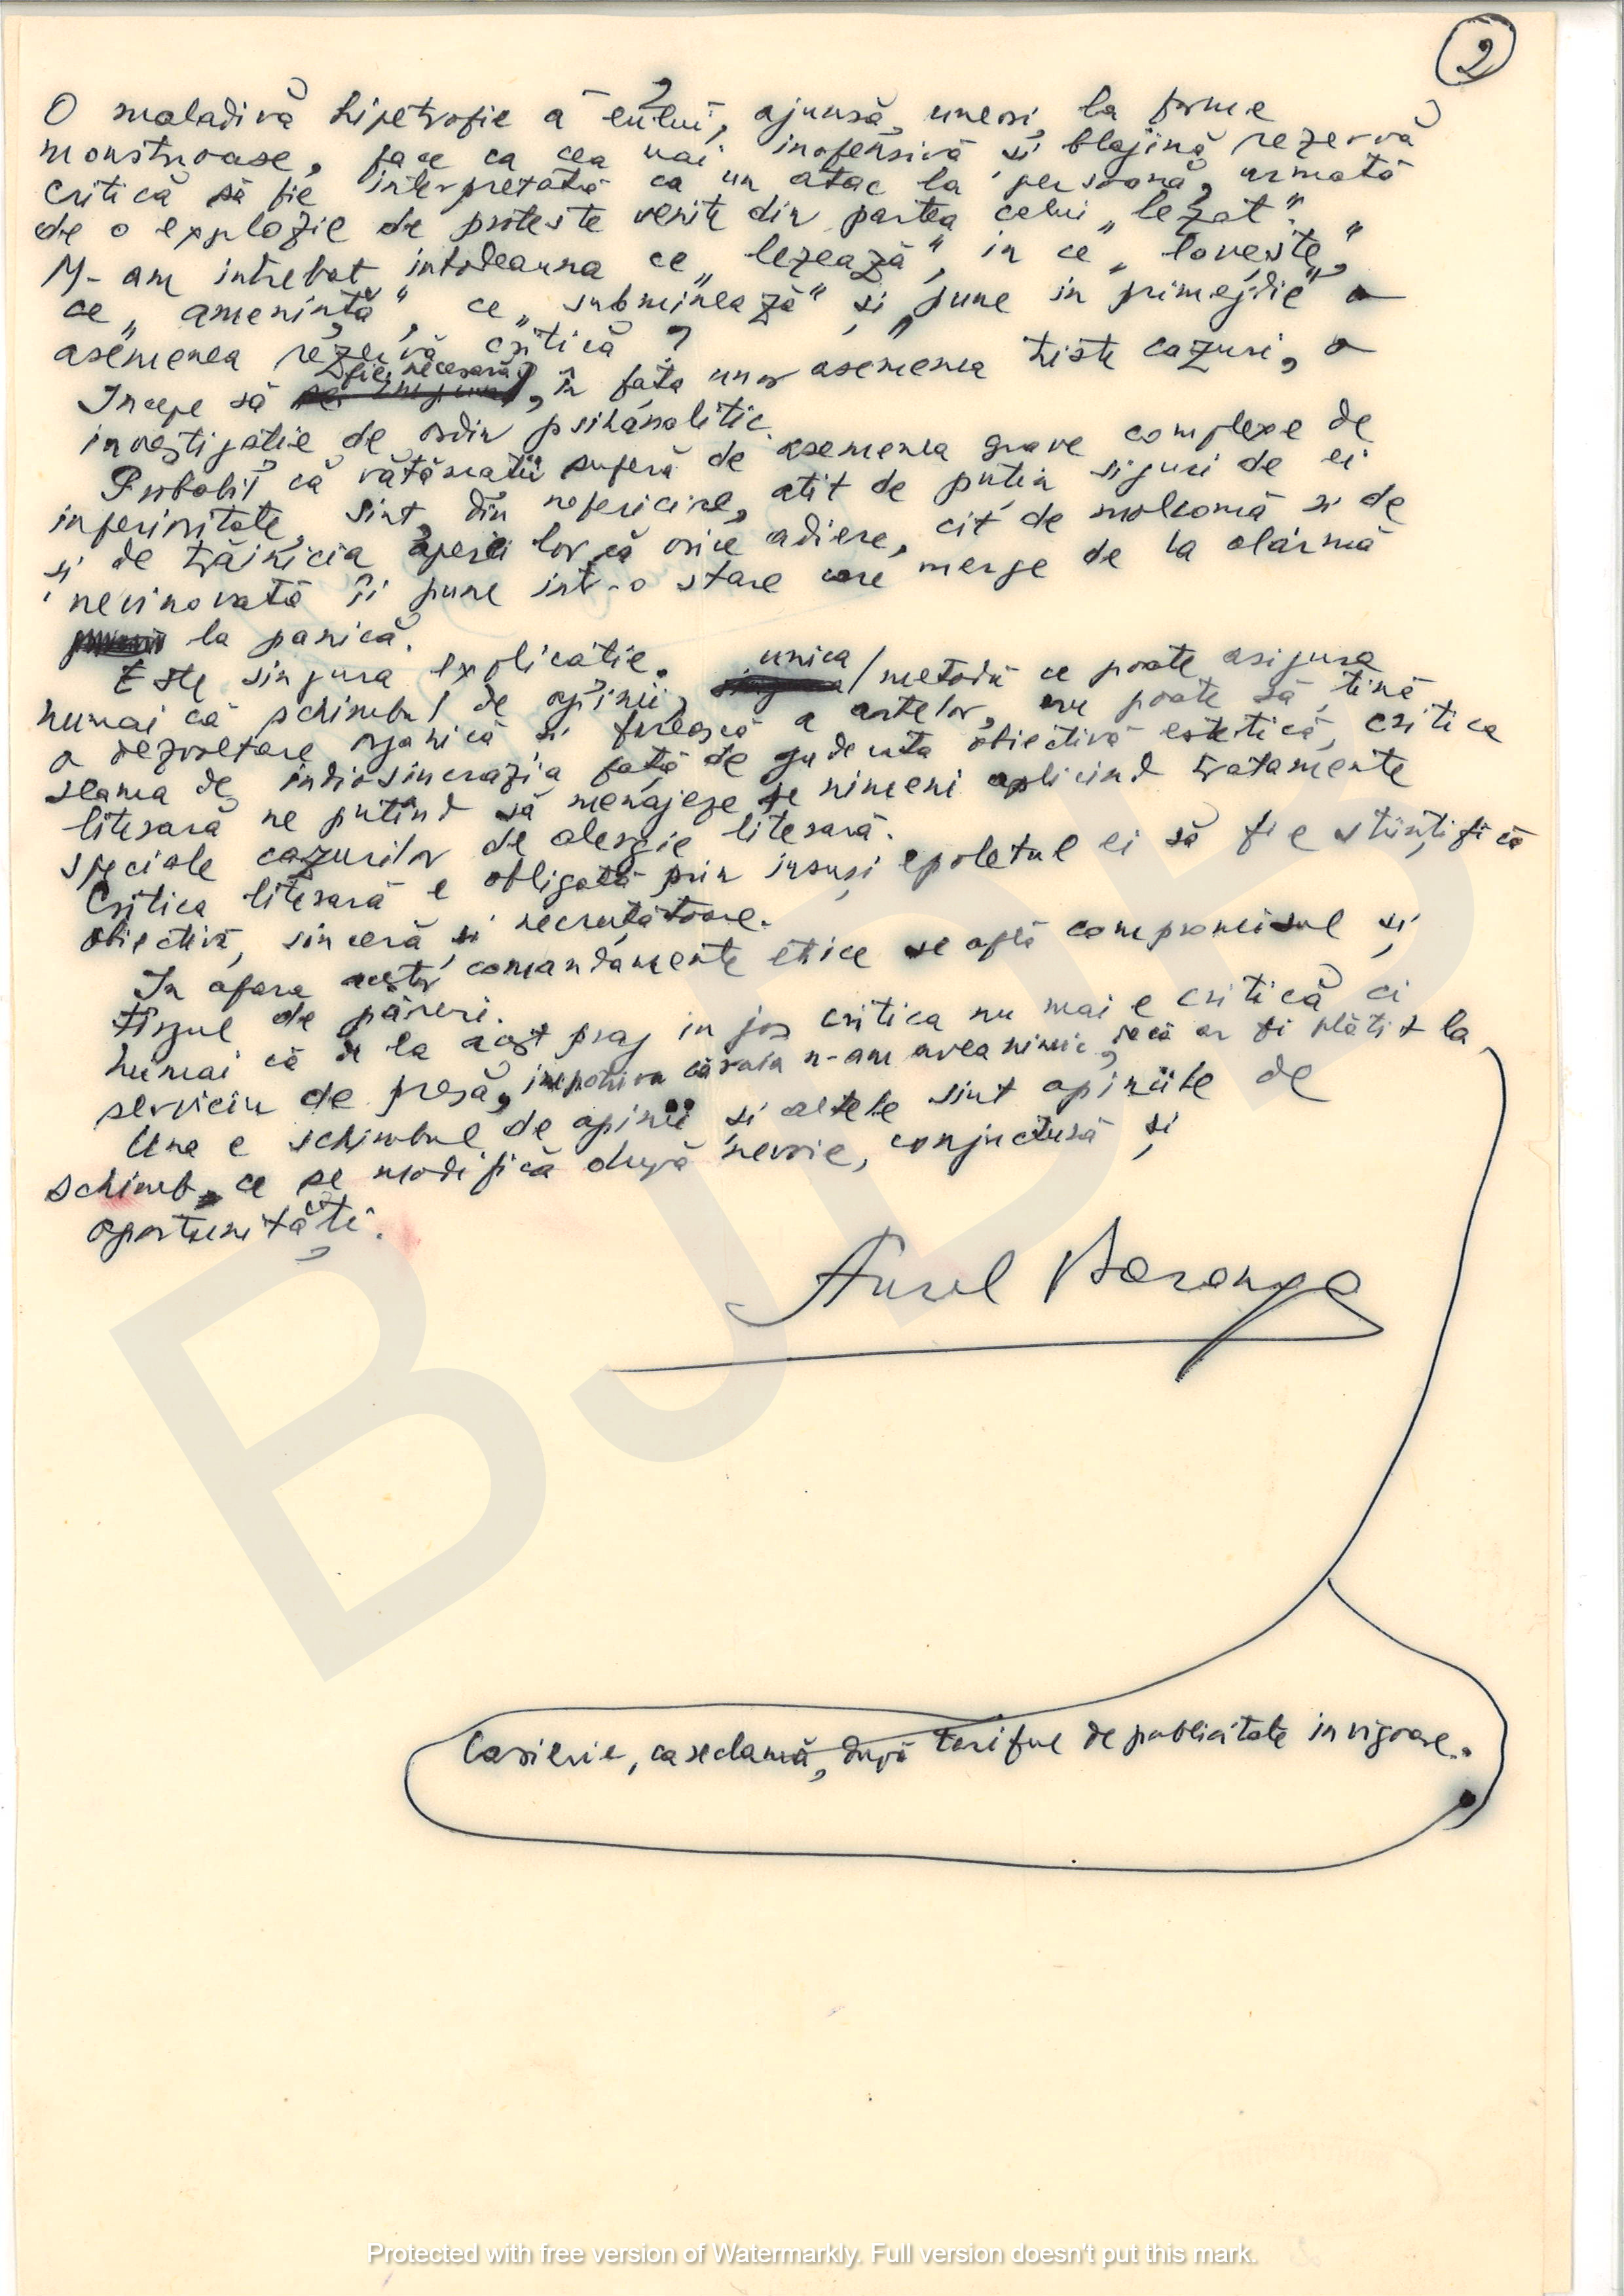 2
O maladivă hipetrofie a "eului", ajunsă, uneori, la forme
monstruoase, face ca cea mai inofensivă și blajină rezervă
critică să fie interpretată ca un atac la persoană, urmată
de o explozie de proteste venite din partea celui „lezat".
M-am întrebat intodeauna ce „lezează", in ce „lovește",
ce „amenință", ce „subminează" și „pune in primejdie" o
asemenea rezervă critică?
Incepe să fie necesară, în fața unor asemenea triste cazuri, o
investigatie de ordin psihanalitic.
Probabil că vătămații suferă de asemenea grave complexe de
inferioritate, sint, din nefericire, atit de puțin siguri de ei
și de trăinicia operei lor, că orice adiere, cit de molcomă si de
nevinovată ii pune intr-o stare care merge de la alarmă
la panică.
Este singura explicatie.
numai că schimbul de opinii, unica metodă ce poate asigura
o dezvoltare organică si firească a artelor, nu poate să țină
seama de indiosincrazia față de judecata obiectivă estetică, critica
literară ne putind să menajeze pe nimeni aplicind tratamente
speciale cazurilor de alergie literară.
Critica literară e obligată prin insuși epoletul ei să fie stiințifică
obiectivă, sinceră si necruțătoare.
In afara acestor comandamente etice se află compromisul și
târgul de păreri.
Numai că de la acest prag in jos critica nu mai e critică ci
serviciu de presă, impotriva căruia n-am avea nimic, dacă ar fi plătit la
Casierie, ca reclamă, după tariful de publicitate in vigoare..
Una e schimbul de opinii si altele sint opiniile de
schimb, ce se modifică după nevoie, conjuctură și
oportunități.
Aurel Baranga
BJDB
Protected with free version of Watermarkly. Full version doesn't put this mark.